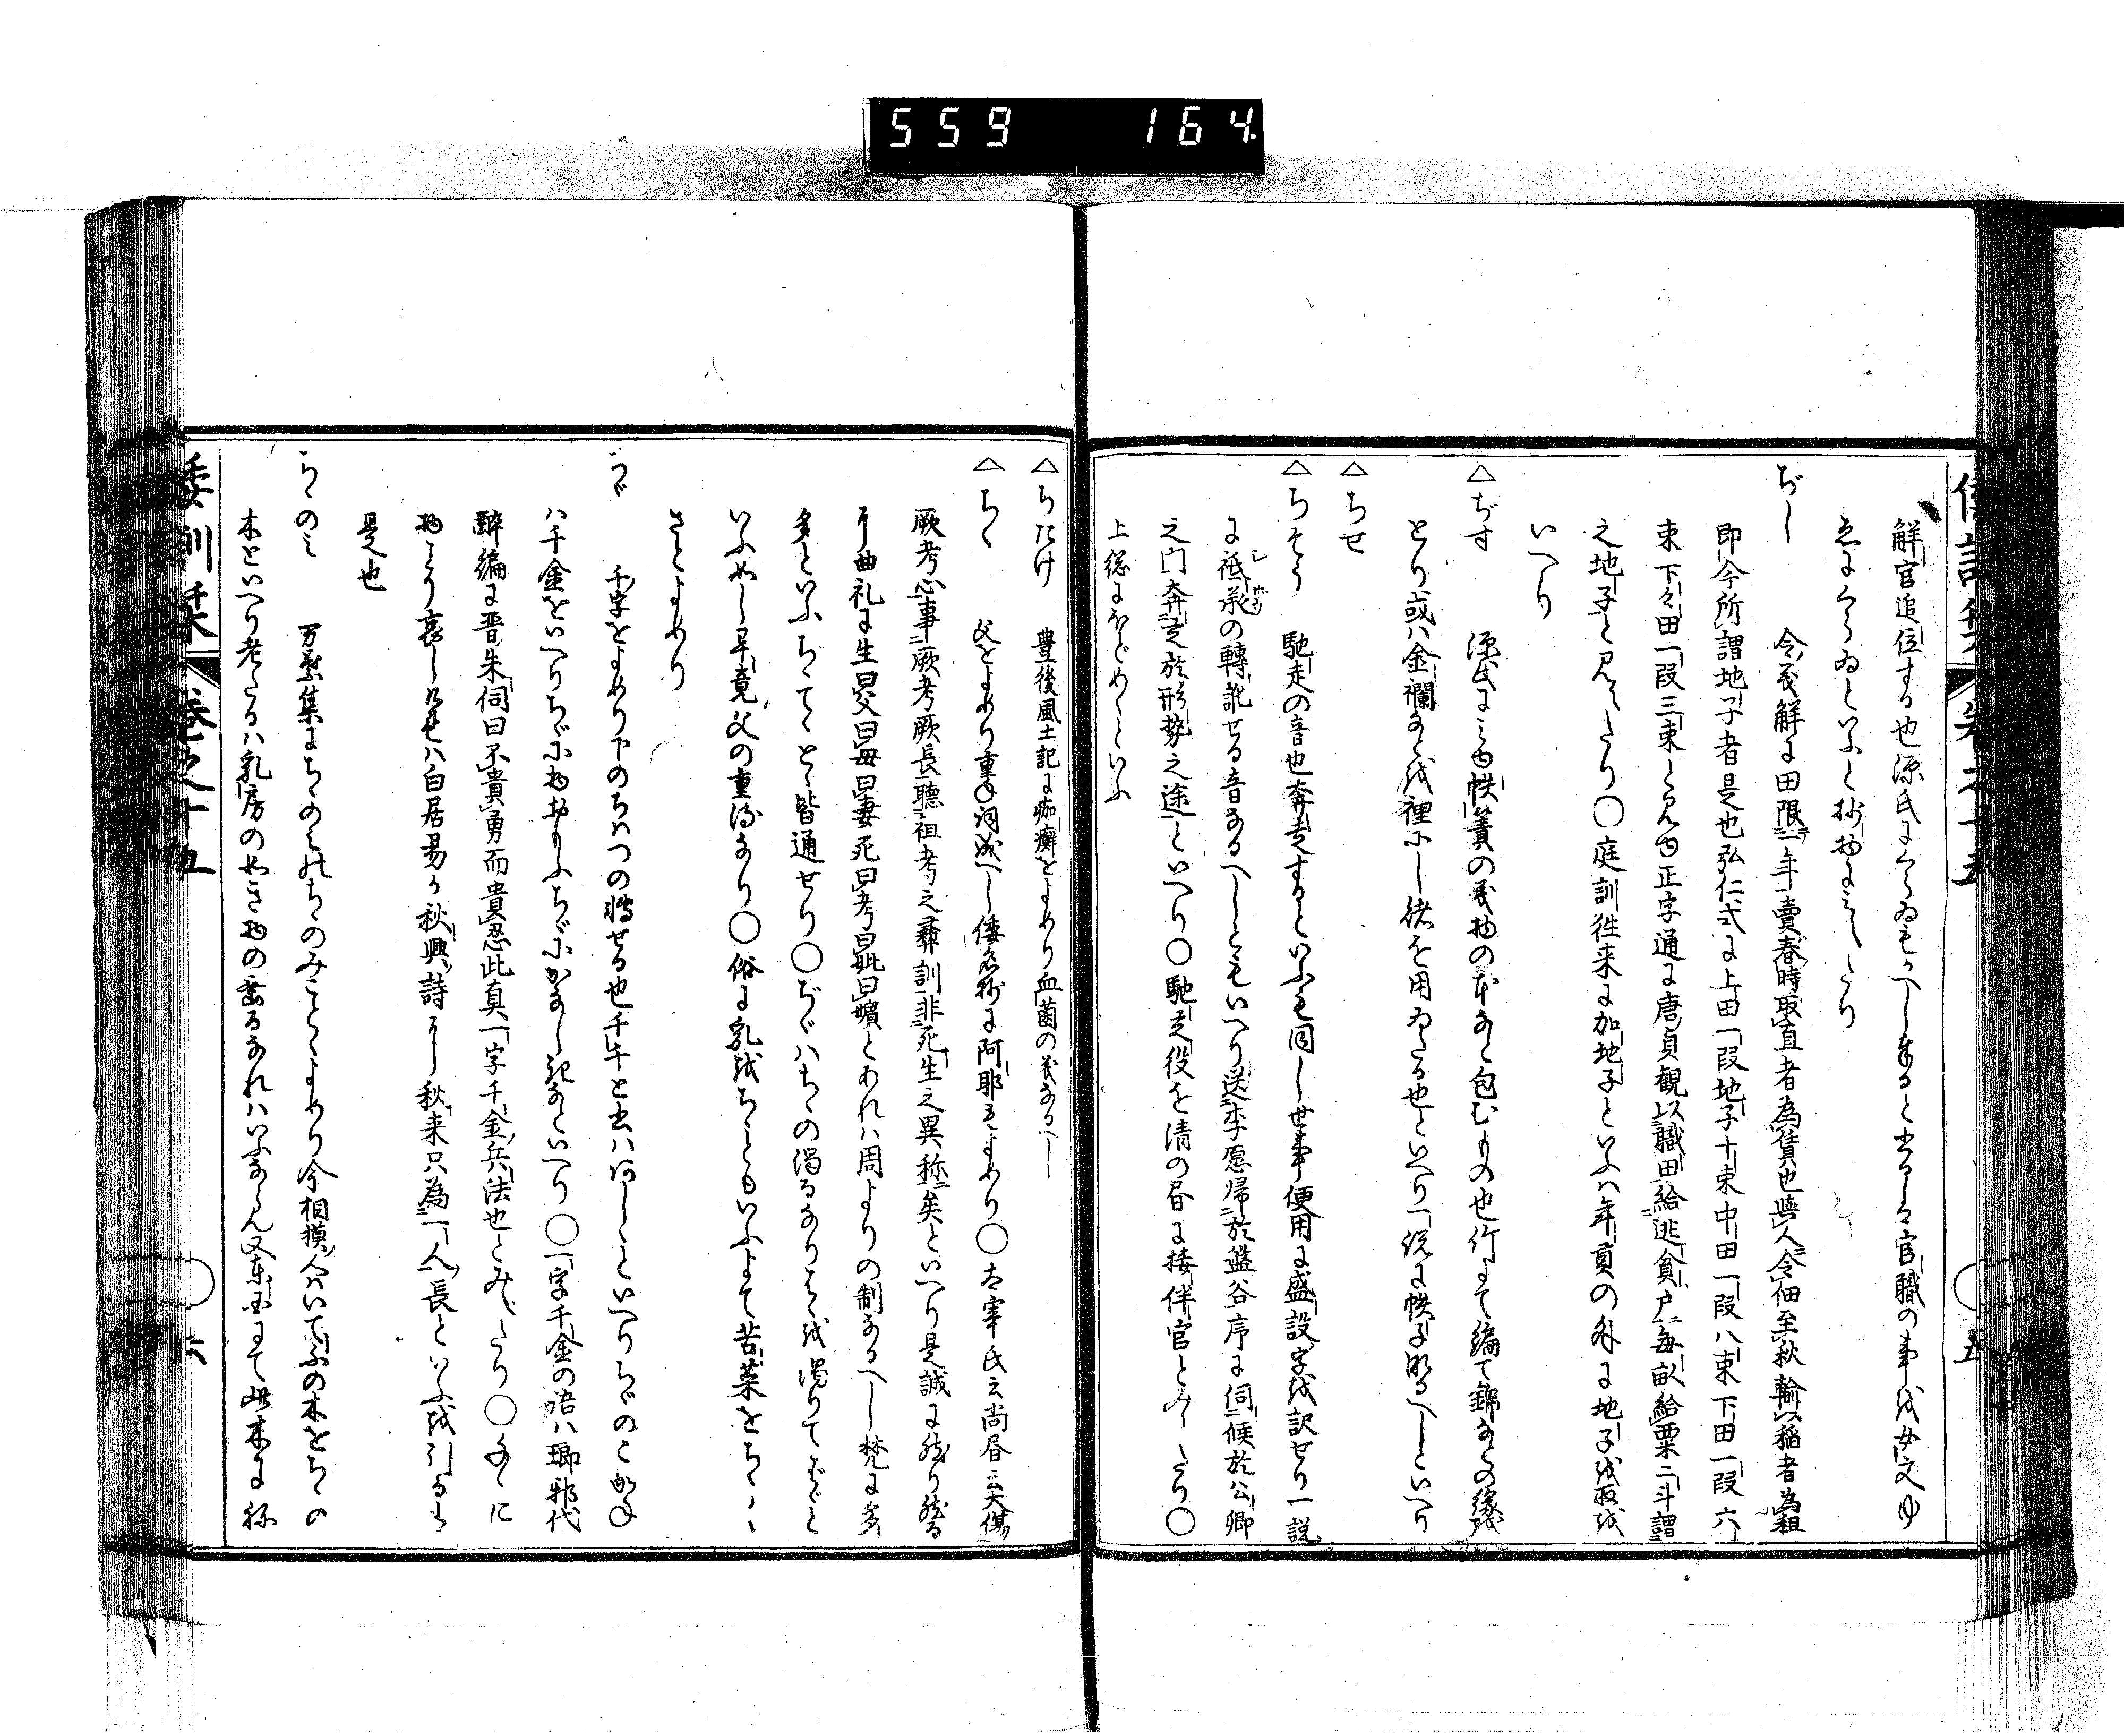 559 164
解官追位する也源氏にくらゐもかへし奉ると書るは官職の事を女文ゆ
ゑにくらゐといふと抄物にみえたり
ぢし 令義解に田限一年賣春時取直者為賃也與人令佃至秋輸稲者為租
即今所謂地子者是也弘仁式に上田一段地子十束中田一段八束下田一段六
束下々田一段三束と見ゆ正字通に唐貞観以職田給逃貧戸毎畝給粟二斗謂
之地子と見えたり〇庭訓徃来に加地子といふは年貢の外に地子を取を
いへり
△ぢす 源氏にみゆ帙簀の義物の本なと包むもの也竹にて編て錦なとの縁を
とり或ハ金襴なとを裡にし緒を用ゐたる也といへり一説に帙子なるへしといへり
△ちせ
△ちそう 馳走の音也奔走するといふも同し世事便用に盛設字を訳せり一説
に祗承の轉訛せる音なるへしともいへり送李愿帰於盤谷序に伺候於公卿
之门奔走於形勢之途といへり〇馳走役を清の昼に接伴官とみえたり〇
上総にほとめくといふ
△ちたけ 豊後風土記に痂癬をよめり血菌の義なるへし
△ちゝ 父をよめり重ね詞成へし倭名抄に阿耶もよめり〇太宰氏云尚昼云大傷
厥考心事厥考厥長聴祖考之彝訓非死生之異称矣といへり是誠に然り然る
に曲礼に生曰父曰毋曰妻死曰考曰妣曰嬪とあれハ周よりの制なるへし梵に多
多といふちてとと皆通せり〇ぢゞハちゝの濁るなりはゝを濁りてばゞと
いふかことし畢竟父の重濁なり〇俗に乳をちゝともいふよて苦菜をちゝ
さとよめり
ちゞ 千字をよめり下のちはつの転せる也千千と書ハわろしといへりちゞのこかね
ハ千金をいへりちゞに物おもふちゞにかなし抔なといへり〇一字千金の語ハ瑯邪代
醉編に晋朱伺曰不貴勇而貴忍此真一字千金兵法也とみえたり〇千々に
物こそ哀しけれハ白居易か秋興詩に秋来只為一人長といふを引るも
是也
ちゝのみ 万葉集にちゝのみのちゝのみことゝよめり今相模人いてふの木をちゝの
木といへり老たるハ乳房の如き物の垂るなれハいふならん又東国にて此木に祢
倭訓栞 巻之十五 五
倭訓栞 巻之十五 六